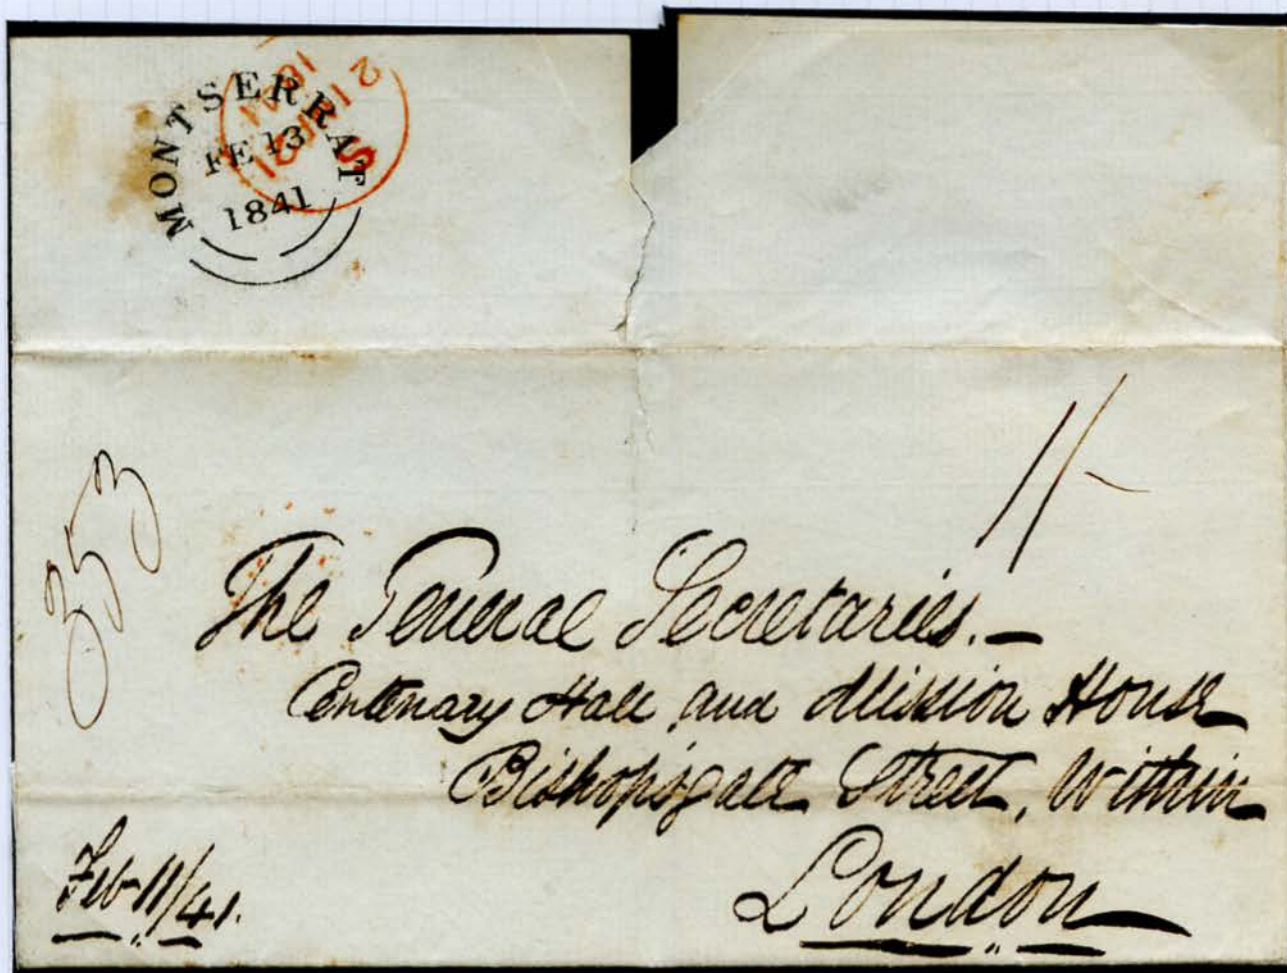 MONTSERRAT
FE 13
1841
1/-
353
The General Secretaries.—
Centenary Hall and Mission House
Bishopsgate Street, Within
London
Feb 11/41.